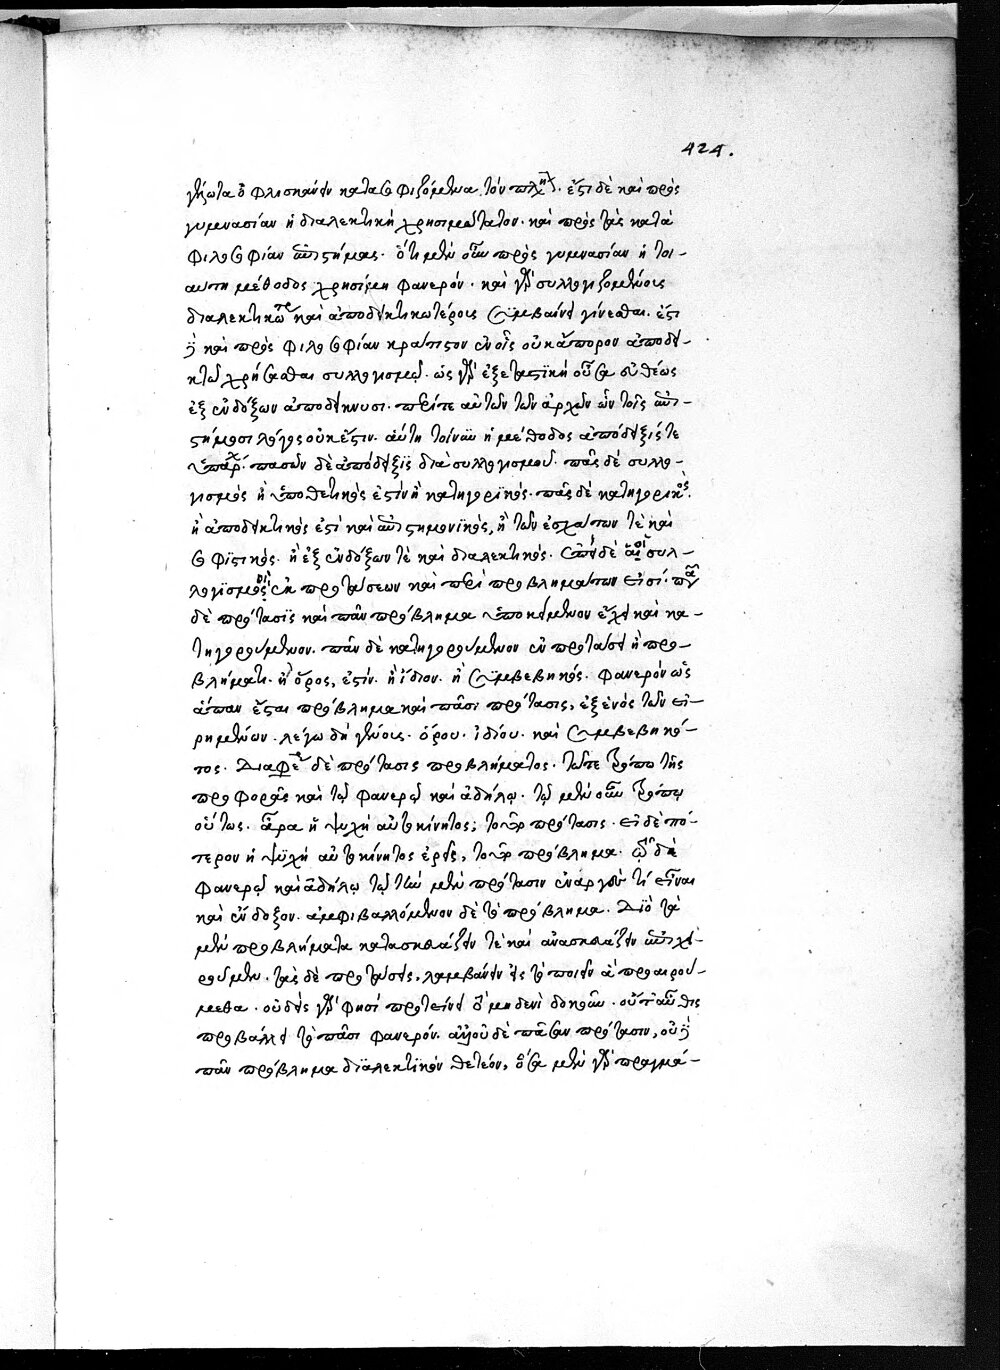 424.
φλισκαίνειν κατασοφιζόμενα τὸν πλη. ἔτι δὲ καὶ πρὸς
γυμνασίαν ἡ διαλεκτικὴ χρησιμωτάτον· καὶ πρὸς τὰς κατὰ
φιλοσοφίαν ἐπιστήμας. ὅτι μὲν οὖν πρὸς γυμνασίαν ἡ τοι-
αύτη μέθοδος χρησίμη φανερόν. καὶ γὰρ συλλογιζομένοις
διαλεκτικῶς καὶ ἀποδεικτικωτέροις συμβαίνει γίνεσθαι. ἔτι
καὶ πρὸς φιλοσοφίαν κράτιστον ἐν οἷς οὐκ ἄπορον ἀποδει-
κτῶ χρῆσθαι συλλογισμῷ. ὡς γὰρ ἐξεταστϊκὴ οὖσα εὐθέως
ἐξ ἐνδόξων ἀποδείκνυσι. περί τε αὐτῶν τῶν ἀρχῶν ὧν τοῖς ἐπι-
στήμοσι λόγος οὐκ ἔστιν. αὕτη τοίνυν ἡ μέθοδος ἀπόδειξίς τε
ὑπάρχ. πασῶν δὲ ἀπόδειξϊς διὰ συλλογισμοῦ. πᾶς δὲ συλλο-
γισμὸς ἢ ὑποθετικὸς ἐστὶν ἢ κατηγορϊκός. πᾶς δὲ κατηγορικὸς.
ἢ ἀποδεικτικὸς ἐστὶ καὶ ἐπιστημονϊκὸς, ἢ τῶν ἐσχάτων τὲ καὶ
σοφϊστικὸς. ἢ ἐξ ἐνδόξων τὲ καὶ διαλεκτικὸς. ἐπεὶ δὲ οἱ συλ-
λογϊσμοὶ ἐκ προτάσεων καὶ περὶ προβλημάτων εἰσί. πᾶσα
δὲ πρότασϊς καὶ πᾶν πρόβλημα ὑποκείμενον ἔχει καὶ κα-
τηγορούμενον. πᾶν δὲ κατηγορούμενον ἐν προτάσει ἢ προ-
βλήματι. ἢ ὅρος, ἐστίν. ἢ ἴδιον. ἢ συμβεβηκός. φανερὸν ὡς
ἅπαν ἔσται πρόβλημα καὶ πᾶσι πρότασις, ἐξ ἑνὸς τῶν εἰ-
ρημένων. λέγω δὴ γένους. ὅρου. ἰδίου. καὶ συμβεβηκό-
τος. Διαφέρει δὲ πρότασις προβλήματος. τῷ τε τρόπῳ τῆς
προφορᾶς καὶ τῷ φανερῷ καὶ ἀδήλῳ. τῷ μὲν οὖν τρόπῳ
οὕτως. ἆρα ἡ ψυχὴ αὐτοκίνητος; τοῦτο πρότασις. εἰ δὲ πό-
τερον ἡ ψϋχὴ αὐτοκίνητος ἐρεῖς, τοῦτο πρόβλημα. τῷ δὴ
φανερῷ καὶ ἀδήλῳ τῷ τὴν μὲν πρότασιν ἐναργοῦς τί εἶναι
καὶ ἔνδοξον. ἀμφιβαλλόμενον δὲ τὸ πρόβλημα. Διὸ τὰ
μὲν προβλήματα κατασκευάζειν τὲ καὶ ἀνασκευάζειν ἐπιχει-
ροῦμεν. τὰς δὲ προτάσεις, λαμβάνειν εἰς τὸ ποιεῖν ἃ προαιρού-
μεθα. οὐδεὶς γὰρ φησὶ προτείνει ὃ μηδενὶ δοκοῦν. οὔτ' αὖθις
προβάλλει τὸ πᾶσι φανερόν. ἀλλ' οὐδὲ πᾶσαν πρότασιν, οὐδὲ
πᾶν πρόβλημα διαλεκτϊκὸν θετέον, ὅσα μὲν γὰρ πραγμά-